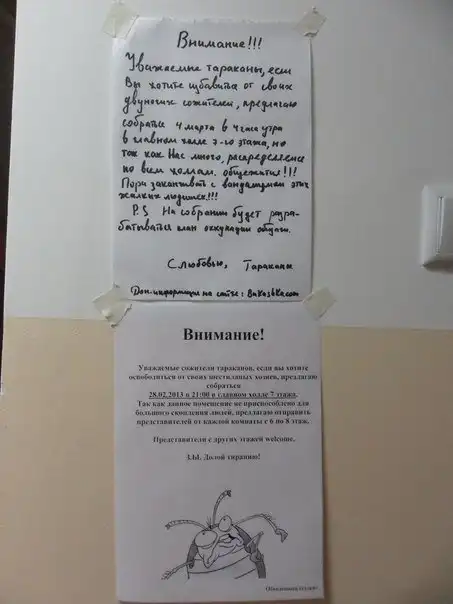 Внимание!!!
Уважаемые тараканы, если
Вы хотите избавиться от своих
двуногих сожителей, предлагаю
собраться 4 марта в 4 часа утра
в главном холле 7-го этажа, но
так как Нас много, распределение
по всем холлам общежития!!!
Пора заканчивать с вандализмом этих
жалких людишек!!!
P.S На собрании будет разра-
батываться план оккупации общаги.
С любовью, Тараканы
Доп. информация на сайте:
Внимание!
Уважаемые сожители тараканов, если вы хотите
освободиться от своих шестилапых хозяев, предлагаю
собраться
28.02.2013 в 21:00 в главном холле 7 этажа.
Так как данное помещение не приспособлено для
большого скопления людей, предлагаю отправить
представителей от каждой комнаты с 6 по 8 этаж.
Представители с других этажей welcome.
З.Ы. Долой тиранию!